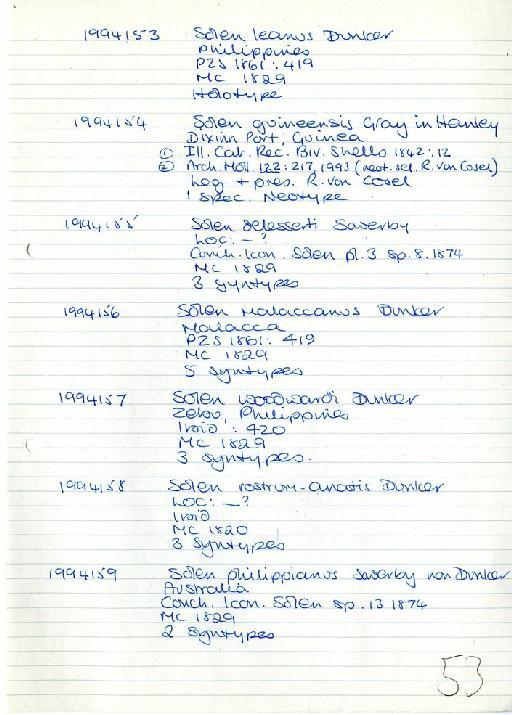 1994153 Solen leanus Dunker
Philippines
PZS 1861: 419
MC 1829
Holotype
1994154 Solen guineensis Gray in Hanley
Dixinn Port, Guinea
① Ill. Cat. Rec. Biv. Shells 1842: 12
② Arch. Moll. 122: 217, 1993 (neot. sel. R. von Cosel)
Leg + pres. R. von Cosel
1 spec. Neotype
1994155 Solen delesserti Sowerby
Loc: – ?
Conch. Icon. Solen pl. 3 sp. 8. 1874
MC 1829
3 syntypes
1994156 Solen malaccanus Dunker
Malacca
PZS 1861: 419
MC 1829
5 syntypes
1994157 Solen woodwardi Dunker
Zebu, Philippines
Ibid: 420
MC 1829
3 syntypes.
1994158 Solen rostrum-anatis Dunker
Loc: – ?
Ibid
MC 1820
3 syntypes
1994159 Solen philippianus Sowerby non Dunker
Australia
Conch. Icon. Solen sp. 13 1874
MC 1829
2 syntypes
53